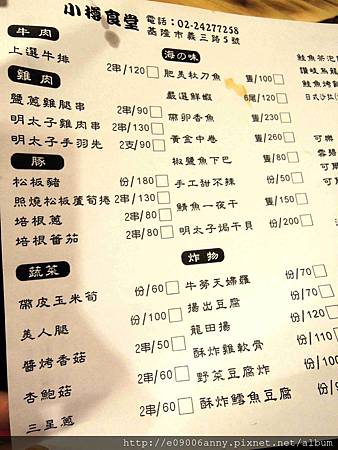 小樽食堂
電話：02-24277258
基隆市義三路5號
牛肉
上選牛排 2串/120
雞肉
鹽蔥雞腿串 2串/90
明太子雞肉串 2串/130
明太子手羽先 2支/90
豚
松板豬 份/180
照燒松板蘆筍捲 2串/130
培根蔥 2串/80
培根番茄 2串/80
蔬菜
帶皮玉米筍 份/60
美人腿 份/100
醬烤香菇 2串/50
杏鮑菇 2串/60
三星蔥 2串/60
海の味
肥美秋刀魚 隻/100
嚴選鮮蝦 6尾/120
帶卵香魚 隻/230
黃金中卷 隻/260
椒鹽魚下巴 隻/80
手工甜不辣 份/50
鯖魚一夜干 隻/150
明太子焗干貝 份/200
炸物
牛蒡天婦羅 份/70
揚出豆腐 份/70
龍田揚 份/120
酥炸雞軟骨 份/110
野菜豆腐炸 份/60
酥炸鱈魚豆腐 份/
鮭魚茶泡
讚岐烏龍
鮭魚烤
日式沙拉
可樂
雪碧
可
http://e09006anny.pixnet.net/album